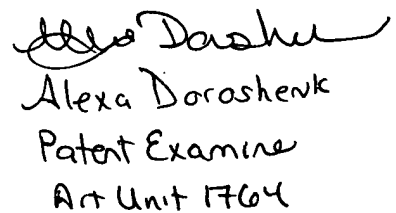 Alexa Doroshenk
Alexa Doroshenk
Patent Examine
Art Unit 1764